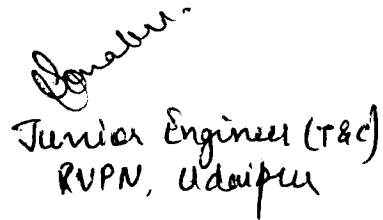 Junior Engineer (T&C)
RVPN, Udaipur